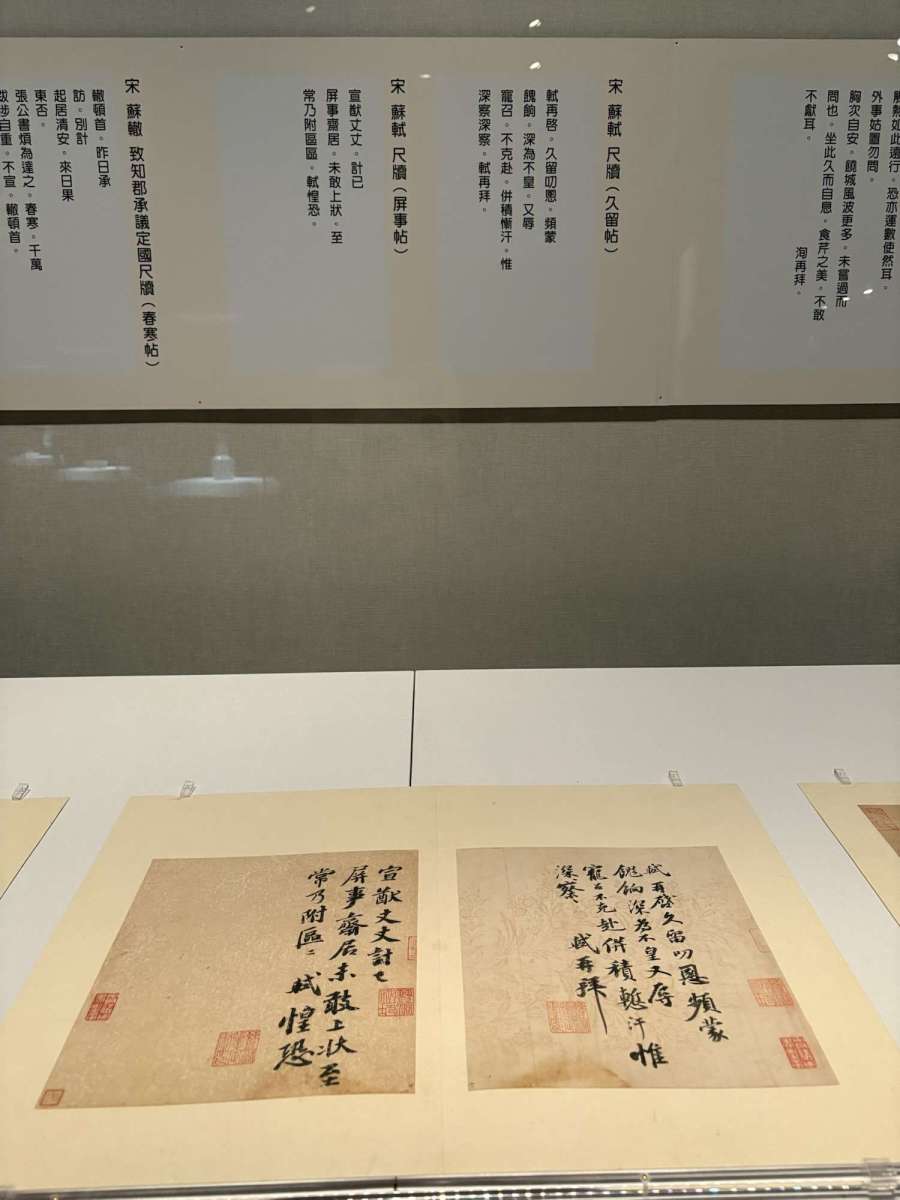 解熱如此遠行。恐亦運數使然耳。
外事姑置勿問。
胸次自安。饒城風波更多。未嘗過而
問也。坐此久而自息。食芹之美。不敢
不獻耳。
洵再拜。
宋 蘇軾 尺牘(久留帖)
軾再啓。久留叨恩。頻蒙
餽餉。深為不皇。又辱
寵召。不克赴。併積慚汗。惟
深察深察。軾再拜。
宋 蘇軾 尺牘(屏事帖)
宣猷丈丈。計已
屏事齋居。未敢上狀。至
常乃附區區。軾惶恐。
宋 蘇轍 致知郡承議定國尺牘(春寒帖)
轍頓首。昨日承
訪。別計
起居清安。來日果
東否。
張公書煩為達之。春寒。千萬
跋涉自重。不宣。轍頓首。
軾再啓久留叨恩頻蒙
餽餉深為不皇又辱
寵召不克赴併積慙汗惟
深察〻軾再拜
宣猷丈丈計已
屏事齋居未敢上狀至
常乃附區〻軾惶恐